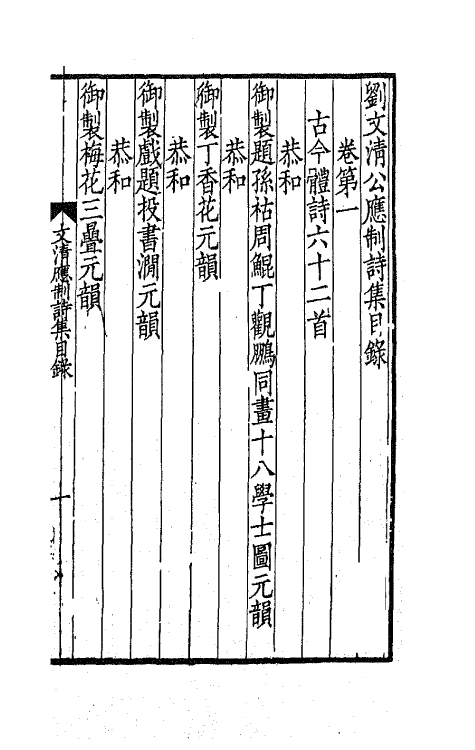 劉文清公應制詩集目錄
卷第一
古今體詩六十二首
恭和
御製題孫祜周鯤丁觀鵬同畫十八學士圖元韻
恭和
御製丁香花元韻
恭和
御製戲題投書澗元韻
恭和
御製梅花三疊元韻
文清應制詩集目錄
一